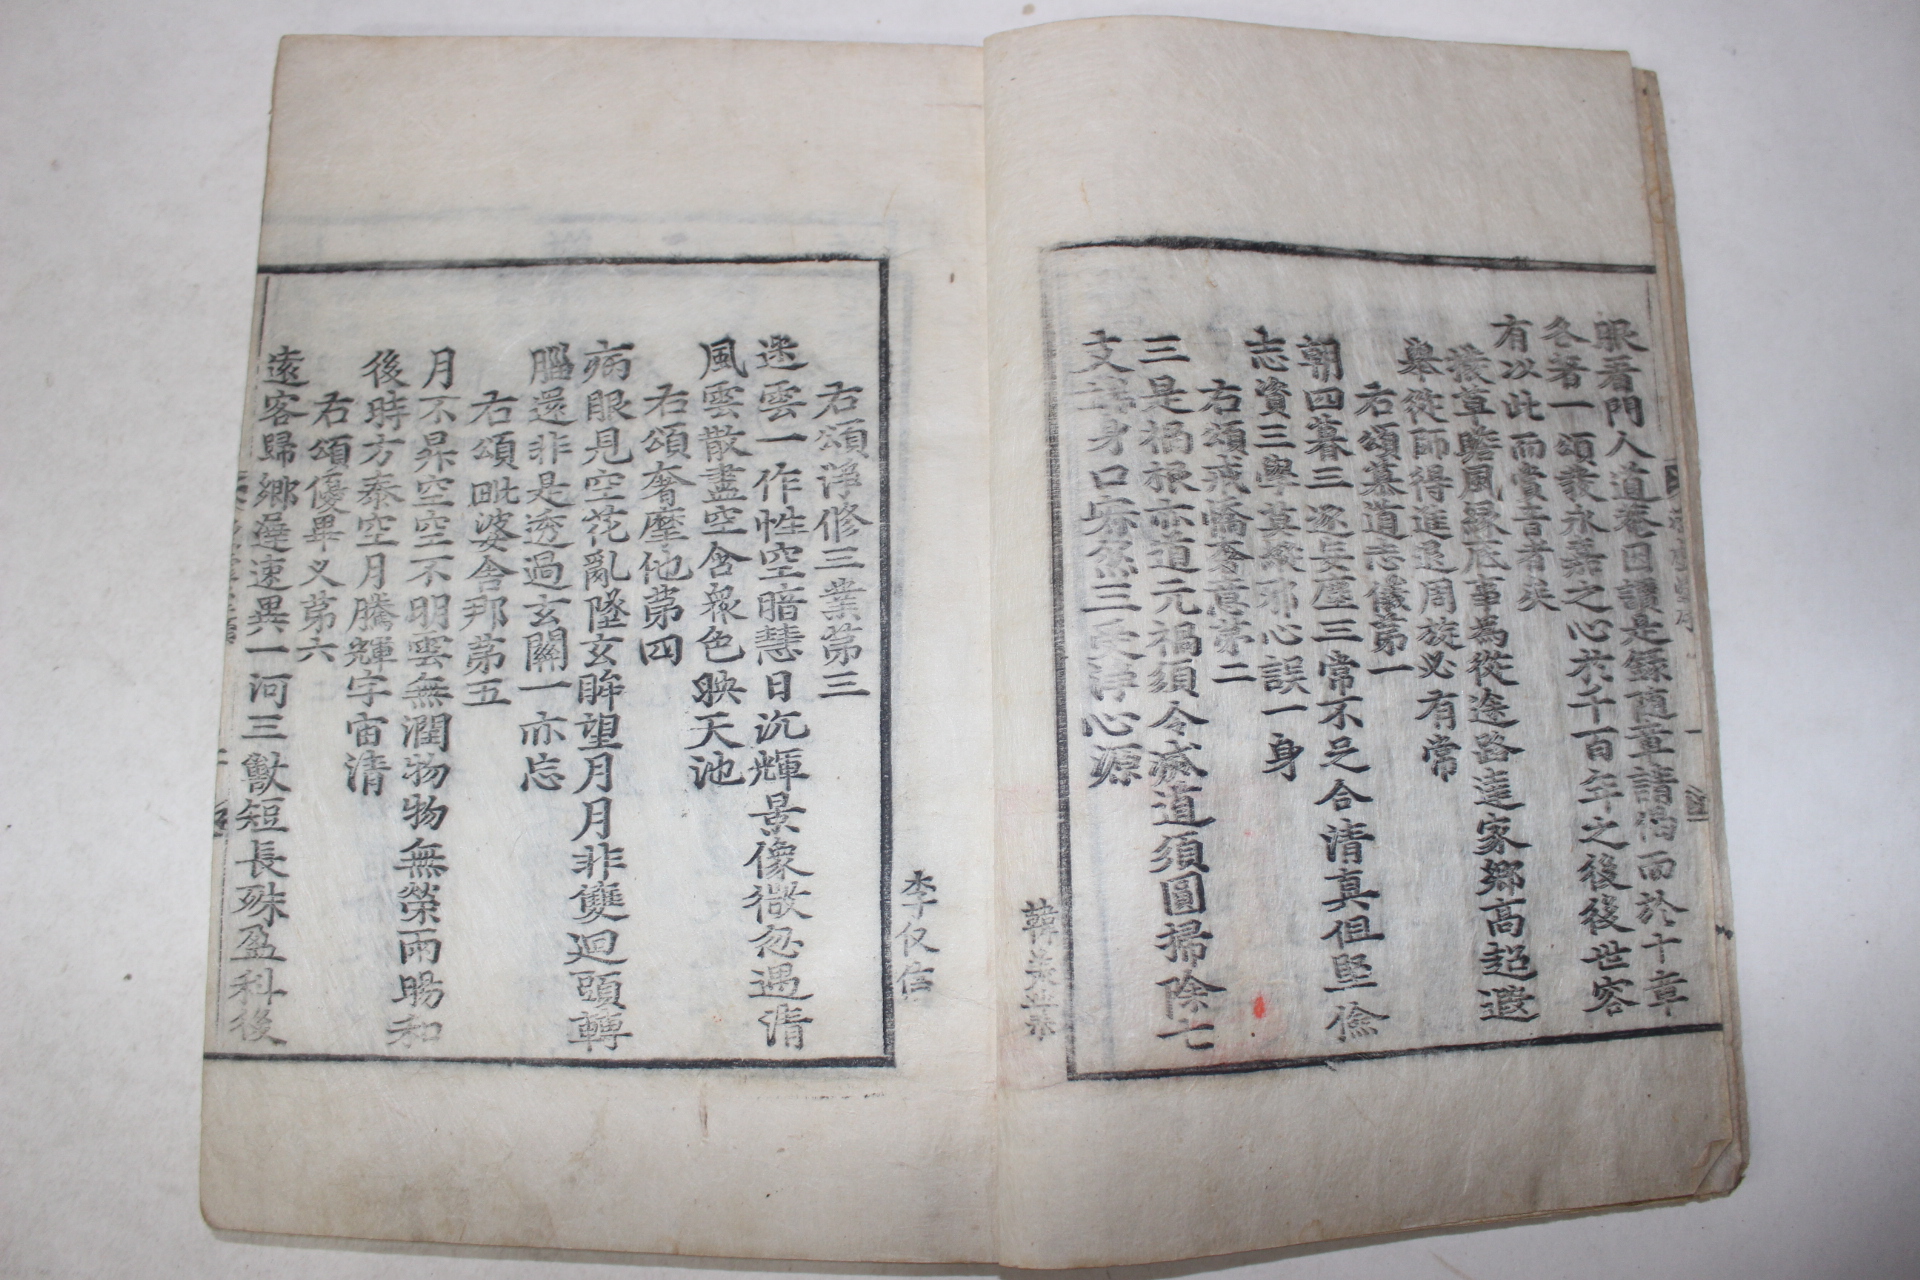 眼着門人道菴因讀是錄随章請偈而於十章
各著一頌發永嘉之心於千百年之後後世客
有以此而賞音者矣
撥草瞻風緣底事為從途路達家鄉高超邈
舉從師得進退周旋必有常
右頌慕道志儀第一
朝四暮三逐妄塵三常不足合清真但堅儉
志資三學莫縱邪心誤一身
右頌戒憍奢意第二
三是禍根亦道元禍須令滅道須圓掃除七
支身口寂然三受淨心源
韓
右頌淨修三業第三
迷雲一作性空暗慧日沉輝景像微忽遇清
風雲散盡空含衆色映天池
右頌奢摩他第四
病眼見空花亂墜玄眸望月月非雙迴頭轉
腦還非是透過玄關一亦忘
右頌毗婆舍那第五
月不昇空空不明雲無潤物物無榮雨暘和
後時方泰空月騰輝宇宙清
右頌優畢叉第六
遠客歸鄉遲速異一河三獸短長殊盈科後
李仅